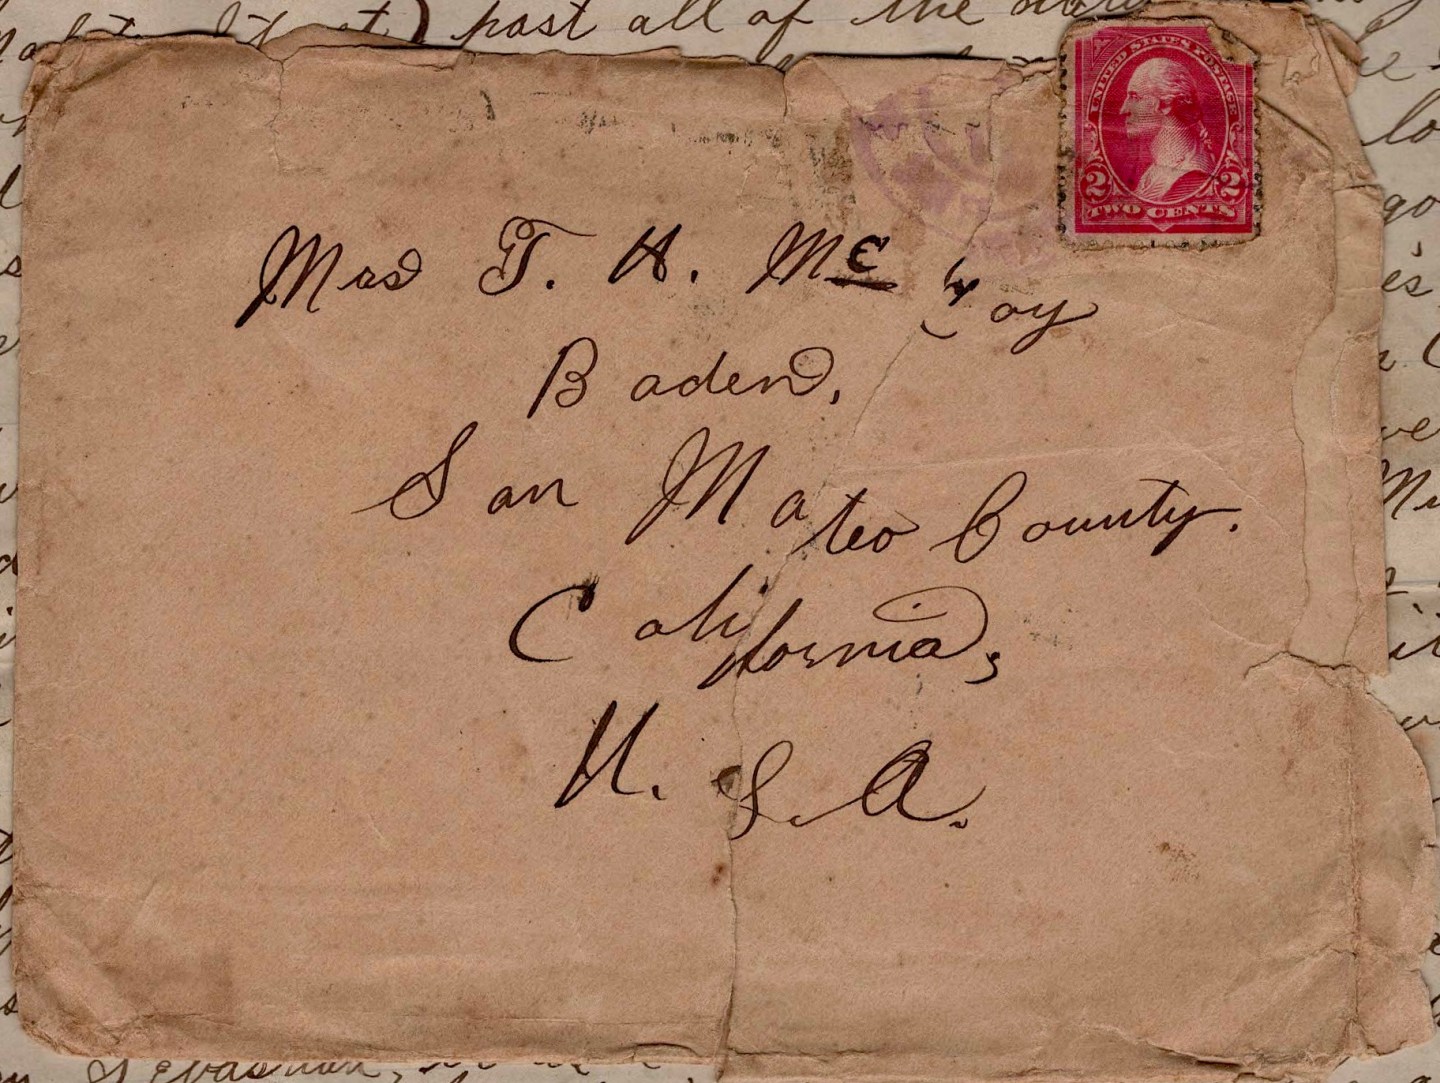 past all of the
UNITED STATES POSTAGE
2 2
TWO CENTS
Mrs T. H. Mc Coy
Baden,
San Mateo County.
California,
U. S. A.